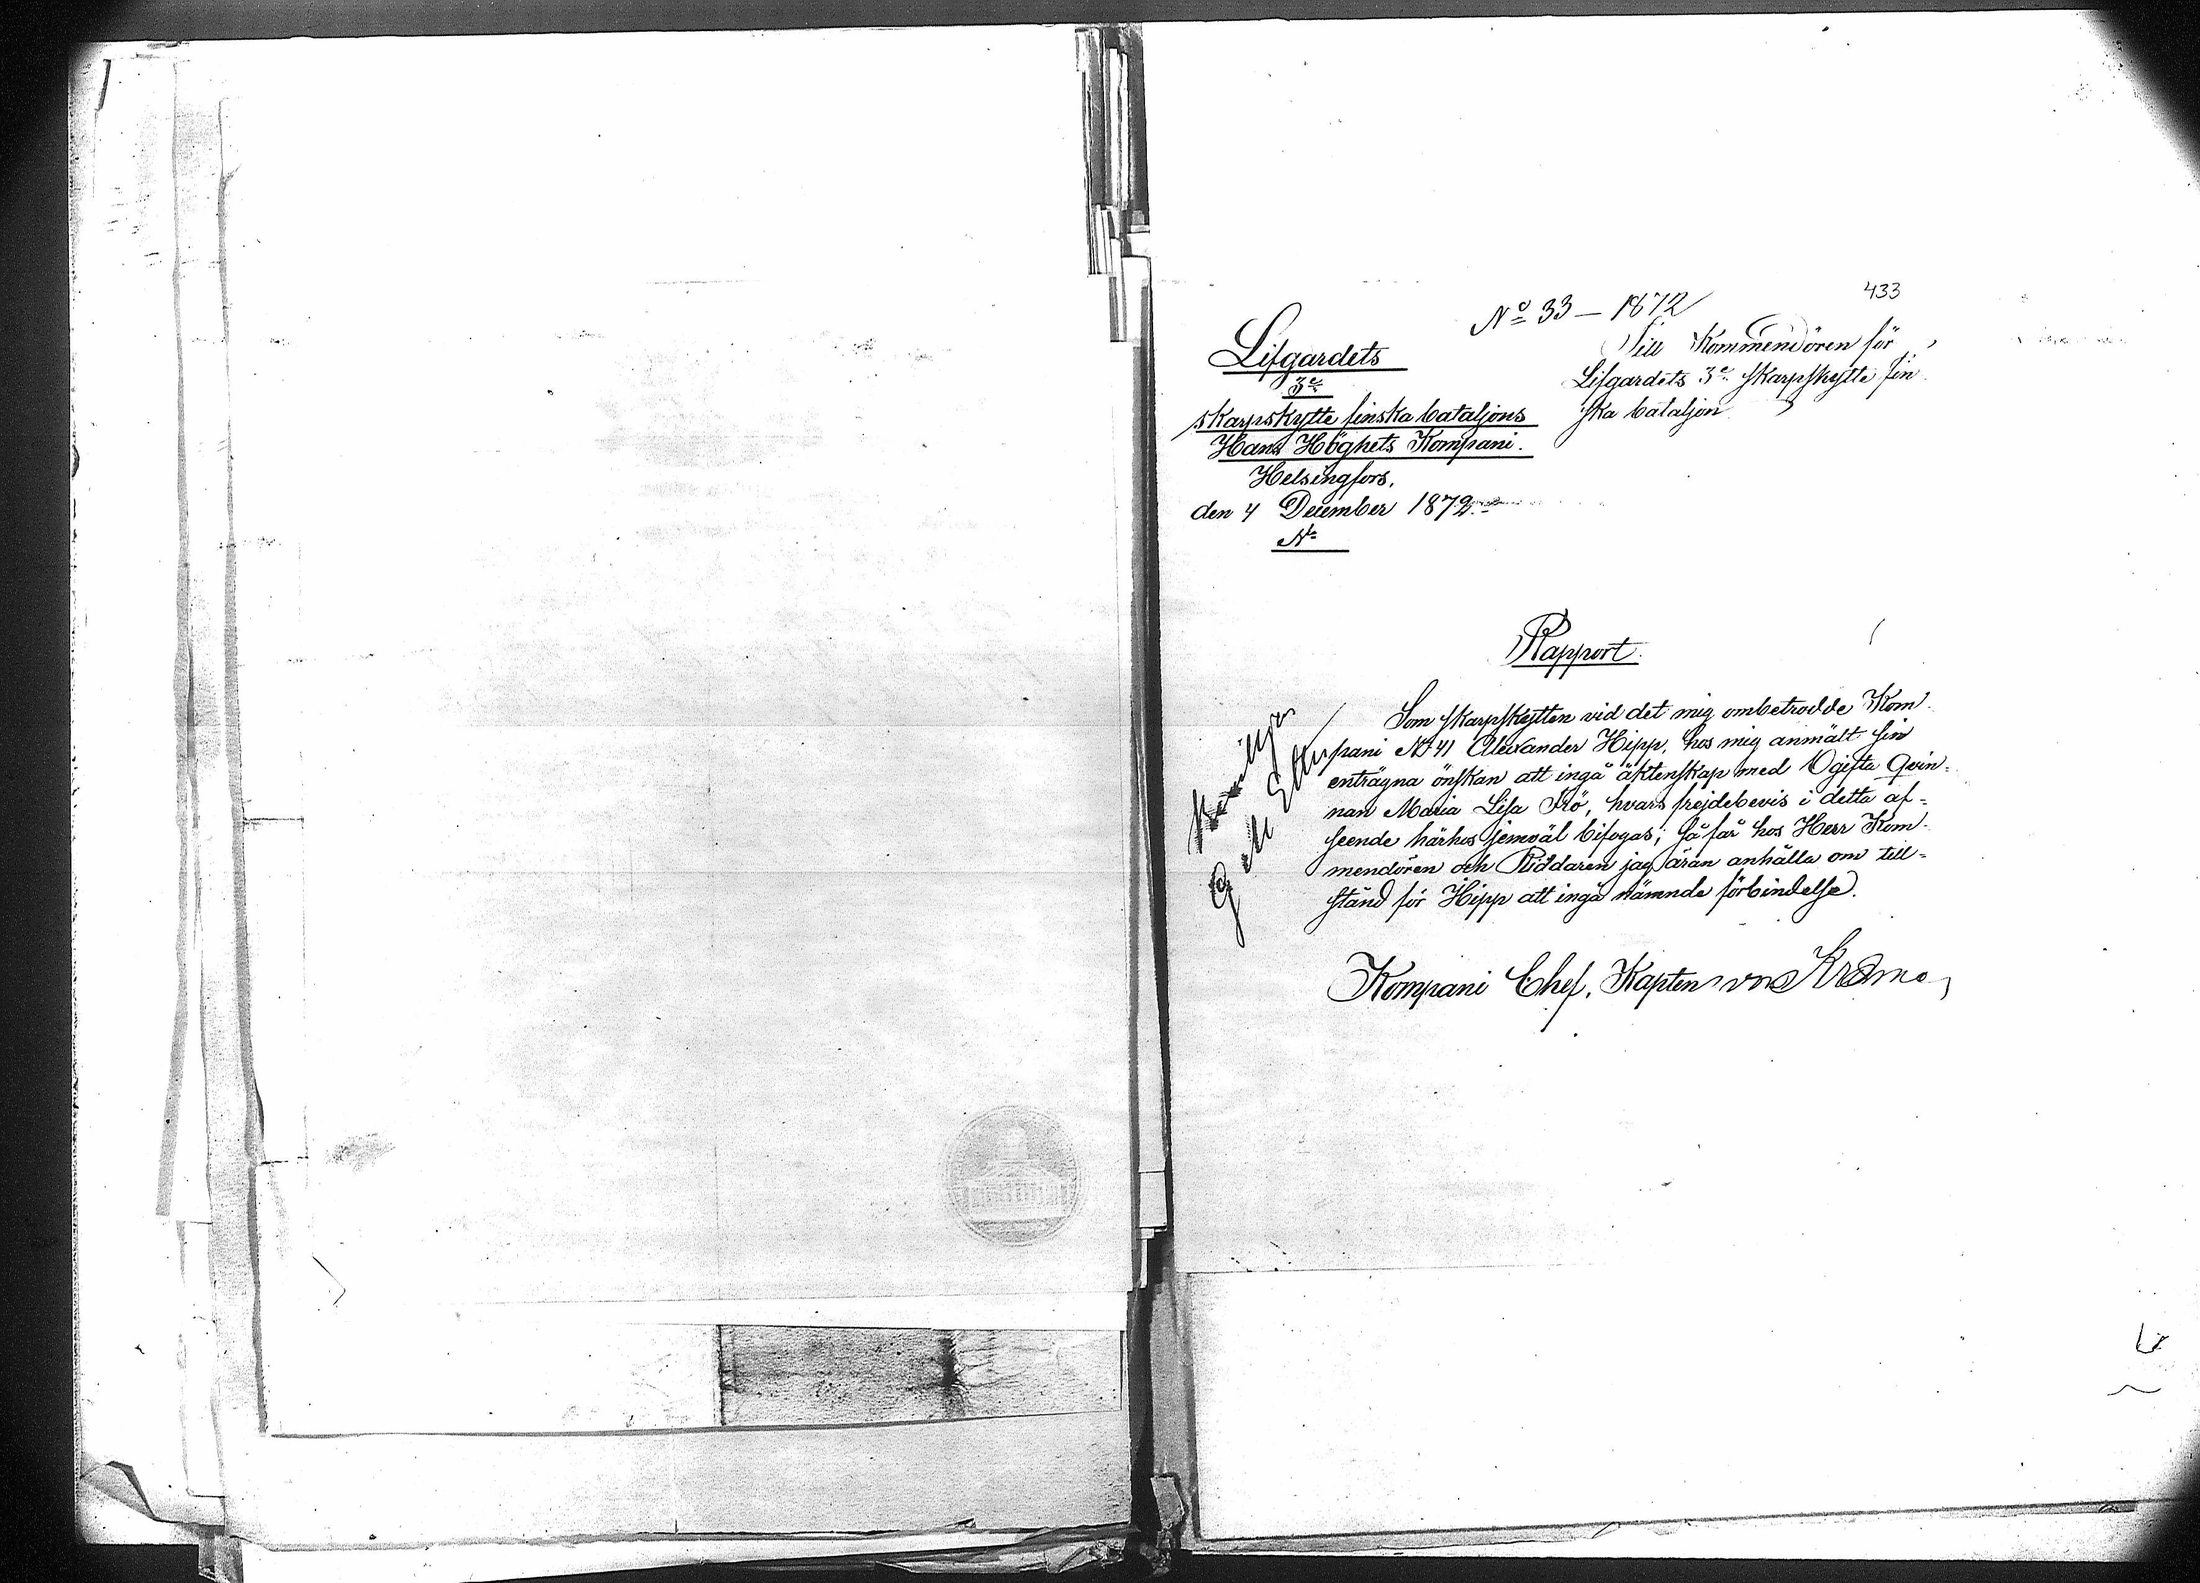 433
No 33 – 1872
Lifgardets
3e
skarpskytte finska bataljons
Hans Höghets Kompani.
Helsingfors,
den 4 December 1872.
No
Till Kommendören för
Lifgardets 3e skarpskytte fin
ska bataljon
Rapport.
Som skarpskytten vid det mig ombetrodde Kom
pani No 41 Alexander Hipp, hos mig anmält sin
enträgna önskan att ingå äktenskap med Ogifta Qvin-
nan Maria Lisa Frö, hvars frejdebevis i detta af-
seende härhos jemväl bifogas; så får hos Herr Kom
mendören och Riddaren jag äran anhålla om till-
stånd för Hipp att ingå nämnde förbindelse.
Kompani Chef, Kapten von